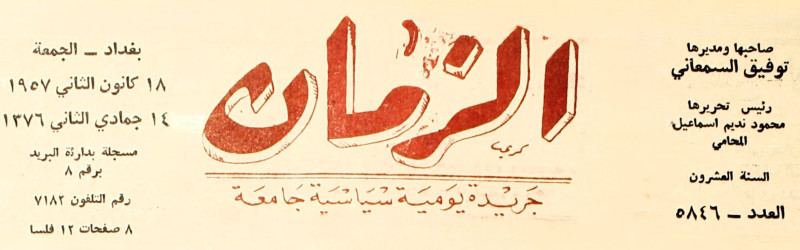 صاحبها ومديرها
توفيق السمعاني
رئيس تحريرها
محمود نديم اسماعيل
المحامي
السنة العشرون
العدد – ٥٨٤٦
الزمان
كريم
جريدة يومية سياسية جامعة
بغداد – الجمعة
١٨ كانون الثاني ١٩٥٧
١٤ جمادي الثاني ١٣٧٦
مسجلة بدائرة البريد
برقم ٨
رقم التلفون ٧١٨٢
٨ صفحات ١٢ فلسا